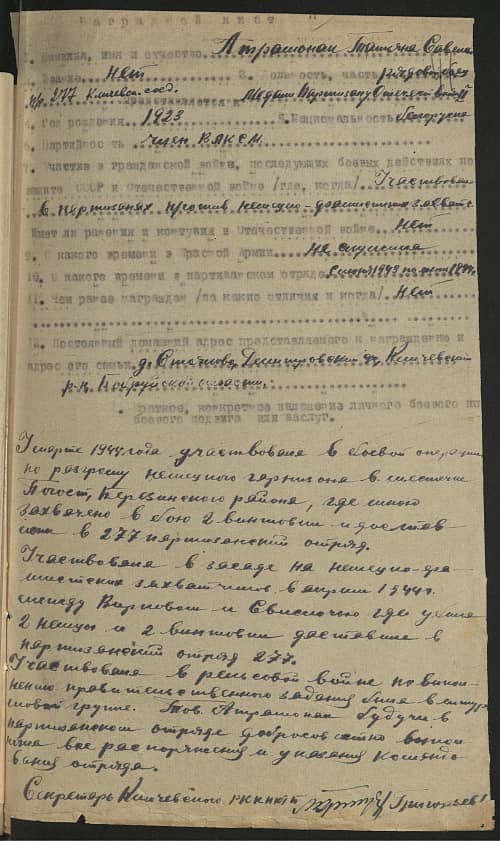 НАГРАДНОЙ ЛИСТ
1. Фамилия, имя и отчество Атрашонак Татьяна Савел
2. Звание Нет 3. Должность, часть рядовая
277 Кличевск. соед.
представляется к Медали Партизану Отечеств. войны
4. Год рождения 1923 5. Национальность белоруска
6. Партийность член ВЛКСМ
7. Участие в гражданской войне, последующих боевых действиях по
защите СССР и Отечественной войне /где, когда/ Участвовала
в партизанах против немецко-фашистских захватч.
Имеет ли ранения и контузии в Отечественной войне Нет
9. С какого времени в Красной Армии не служила
10. С какого времени в партизанском отряде с 1943 по 1944г.
11. Чем ранее награжден /за какие отличия и когда/ Нет
12. Постоянный домашний адрес представляемого к награждению и
адрес его семьи д. Кличевский
р-н, Бобруйской области.
Краткое, конкретное изложение личного боевого или
боевого подвига или заслуг.
У марте 1944 года участвовала в боевой операции
по разгрому немецкого гарнизона в местечке
Погост, Березинского района, где мною
захвачено в бою 2 винтовки и достав-
лены в 277 партизанский отряд.
Участвовала в засаде на немецко-фа-
шистских захватчиков в апреле 1944г.
между и Свислочью где убила
2 немцы и 2 винтовки доставила в
партизанский отряд 277.
Участвовала в рельсовой войне по выпол-
нению правительственного задания была в штур-
мовой группе. Тов. Атрашонак будучи в
партизанском отряде добросовестно выпол
няла все распоряжения и указания командо
вания отряда.
Секретарь Кличевского Григорьев